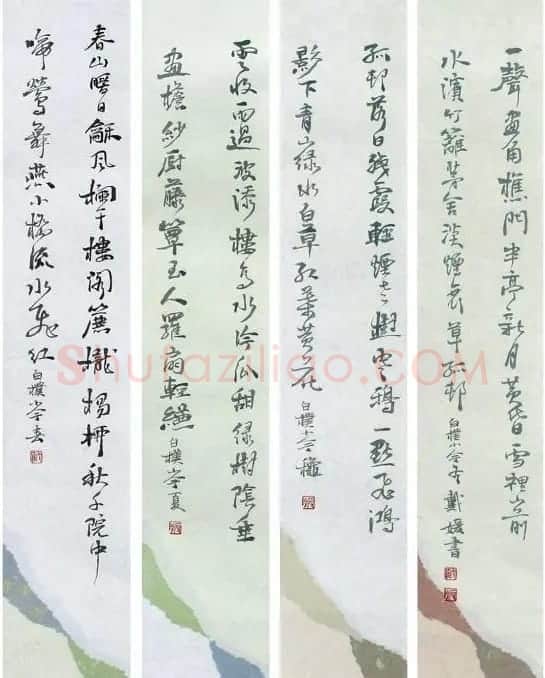 春山暖日龢風欄干樓閣簾櫳楊柳秋千院中
啼鶯舞燕小橋流水飛紅
白樸小令春
雲收雨過波添樓高水冷瓜甜綠樹陰垂
畫檐紗厨藤簟玉人羅扇輕縑
白樸小令夏
孤邨落日殘霞輕煙老樹寒鴉一點飛鴻
影下青山綠水白草紅葉黃花
白樸小令穐
一聲畫角樵門半亭新月黃昏雪裡山前
水濱竹籬茅舍淡煙衰草孤邨
白樸小令冬 戴媛書
Shufaziliao.COM